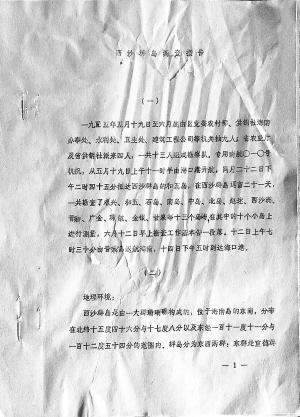 西沙群岛调查报告
(一)
一九五五年五月十九日至六月由区党委农村部、供销社海防
办事处、水利处、卫生处、建筑工程公司等机关抽九人；省农业厅
及省供销社派来四人，一共十三人组成勘察队，专用 机0一0号
机帆，从五月十九日上午十一时半由海口港开航，同月二十二日下
午二时四十五分抵达西沙群岛的和五岛，在西沙群岛逗留二十一天，
一共踏查了永兴、和五、石岛、南岛、中岛、北岛、赵述、西沙洲、
晋卿、广金、琛航、金银、甘泉等十三个岛屿，在其中的十个小岛上
进行测量。六月十二日早上勘查工作基本告一段落，十二日上午七
时三十分由晋卿岛返航海南，十四日下午五时到达海口港。
(二)
地理环境：
西沙群岛是由一大群珊瑚礁构成的，位于海南岛的东南，分布
在北纬十五度四十六分与十七度八分以及东经一百十一度十一分与
一百十二度五十四分的范围内。群岛分为东西两群：东群处宣德群
—1—